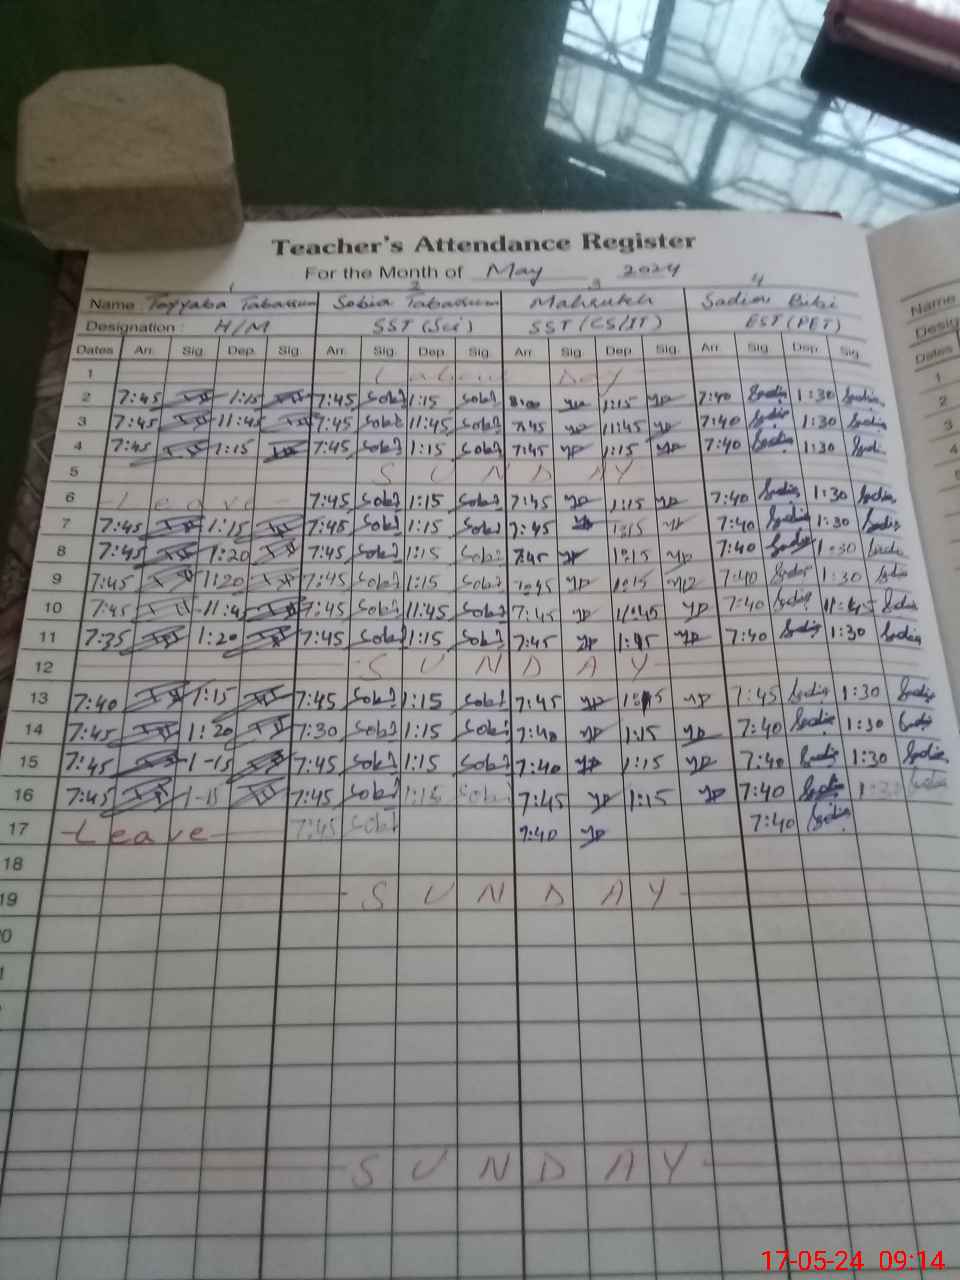 Teacher's Attendance Register
For the Month of May 2024
1 2 3 4
Name Tayyaba Tabassum Sobia Tabassum Mahrukh Sadia Bibi Name
Designation : H/M SST (Sci) SST (CS/IT) EST (PET) Desig
Dates Arr. Sig. Dep. Sig. Arr. Sig. Dep. Sig. Arr. Sig. Dep. Sig. Arr. Sig. Dep. Sig. Dates
1 Labour Day 1
2 7:45 1:15 7:45 Sobi 1:15 Sobi 8:00 1:15 7:40 Sadia 1:30 Sadia 2
3 7:45 11:45 7:45 Sobi 11:45 Sobi 7:45 11:45 7:40 Sadia 1:30 Sadia 3
4 7:45 1:15 7:45 Sobi 1:15 Sobi 7:45 1:15 7:40 Sadia 1:30 Sadia 4
5 SUNDAY 5
6 Leave 7:45 Sobi 1:15 Sobi 7:45 1:15 7:40 Sadia 1:30 Sadia
7 7:45 1:15 7:45 Sobi 1:15 Sobi 7:45 1:15 7:40 Sadia 1:30 Sadia
8 7:45 1:20 7:45 Sobi 1:15 Sobi 7:45 1:15 7:40 Sadia 1:30 Sadia
9 7:45 1:20 7:45 Sobi 1:15 Sobi 7:45 1:15 7:40 Sadia 1:30 Sadia
10 7:45 11:45 7:45 Sobi 11:45 Sobi 7:45 11:45 7:40 Sadia 11:45 Sadia
11 7:35 1:20 7:45 Sobi 1:15 Sobi 7:45 7:40 Sadia 1:30 Sadia
12 SUNDAY
13 7:40 1:15 7:45 Sobi 1:15 Sobi 7:45 7:45 Sadia 1:30 Sadia
14 7:45 1:20 7:30 Sobi 1:15 Sobi 7:40 1:15 7:40 Sadia 1:30 Sadia
15 7:45 1-15 7:45 Sobi 1:15 Sobi 7:40 1:15 7:40 Sadia 1:30 Sadia
16 7:45 1-15 7:45 Sobi 1:15 Sobi 7:45 1:15 7:40 Sadia Sadia
17 Leave 7:45 Sobi 7:40 7:40 Sadia
18
19 SUNDAY
SUNDAY
17-05-24 09:14